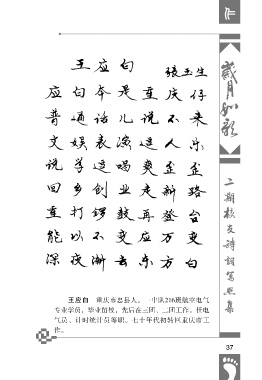 王应白
张玉生
应白本是重庆仔
普通话儿说不来
文娱表演逗人乐
说学逗唱爽歪歪
回乡创业走新路
重打锣鼓再登台
能以不变应万变
深夜渐去东方白
王应白 重庆市忠县人。一中队216班航空电气
专业学员，毕业留校，先后在三团、二团工作。任电
气员、计时统计员等职。七十年代初转回重庆市工
作。
岁月如歌
二期校友诗词写照集
37